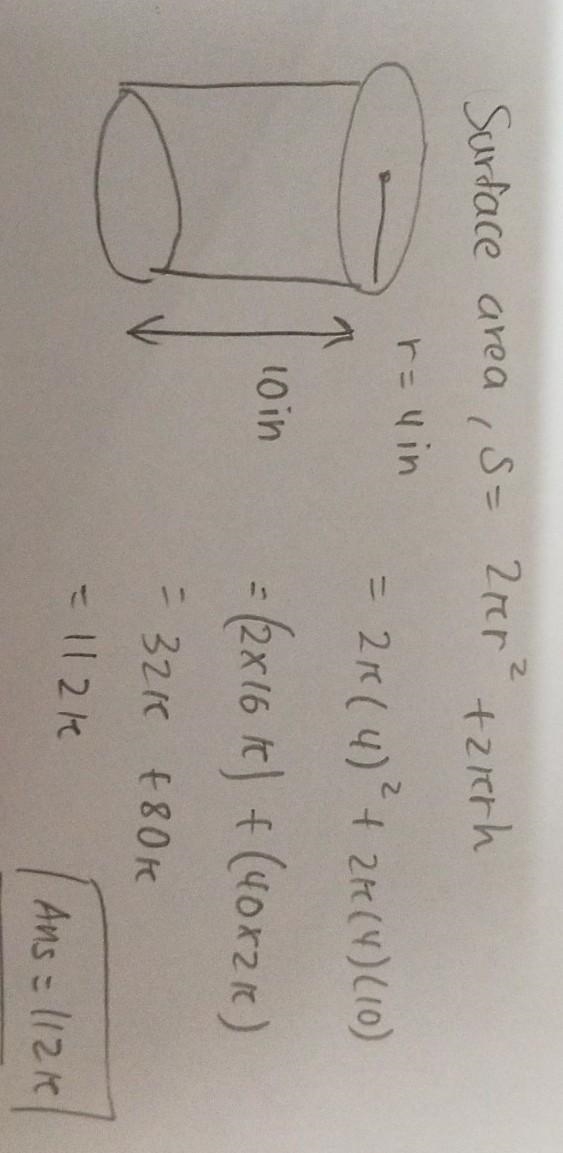 Surface area, S = 2πr² + 2πrh
r = 4 in
10 in
= 2π(4)² + 2π(4)(10)
= (2×16π) + (40×2π)
= 32π + 80π
= 112π
Ans = 112π